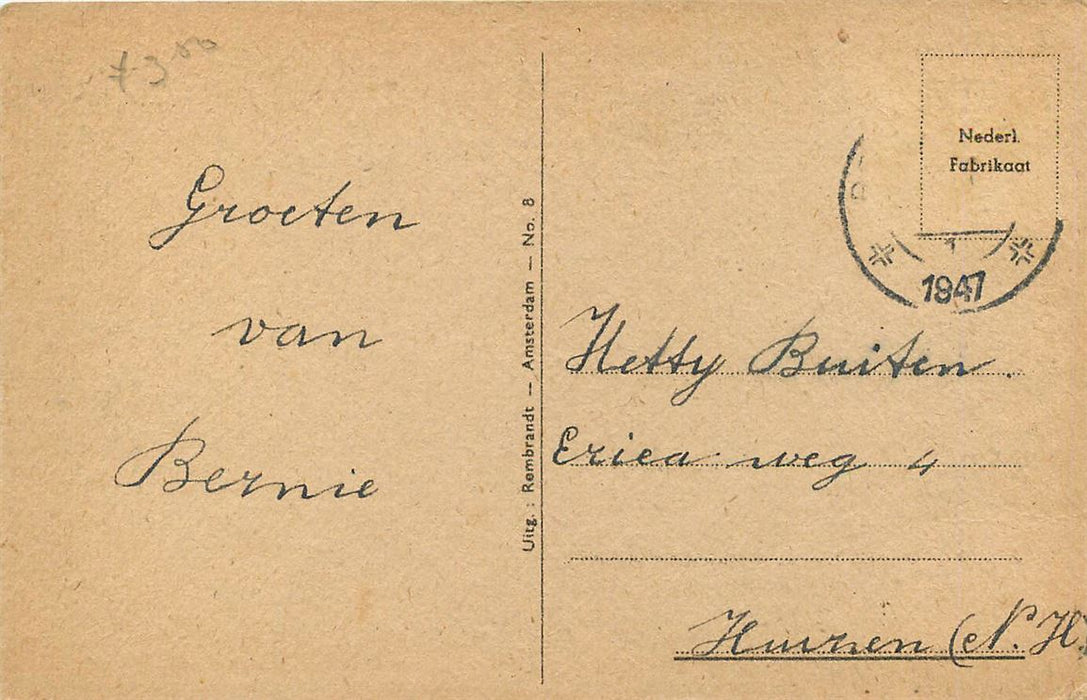 7 3 00
Groeten
van
Bernie
Uitg. : Rembrandt — Amsterdam — No. 8
Nederl.
Fabrikaat
1947
Hetty Buiten.
Erica weg 4
Huizen (N.H.